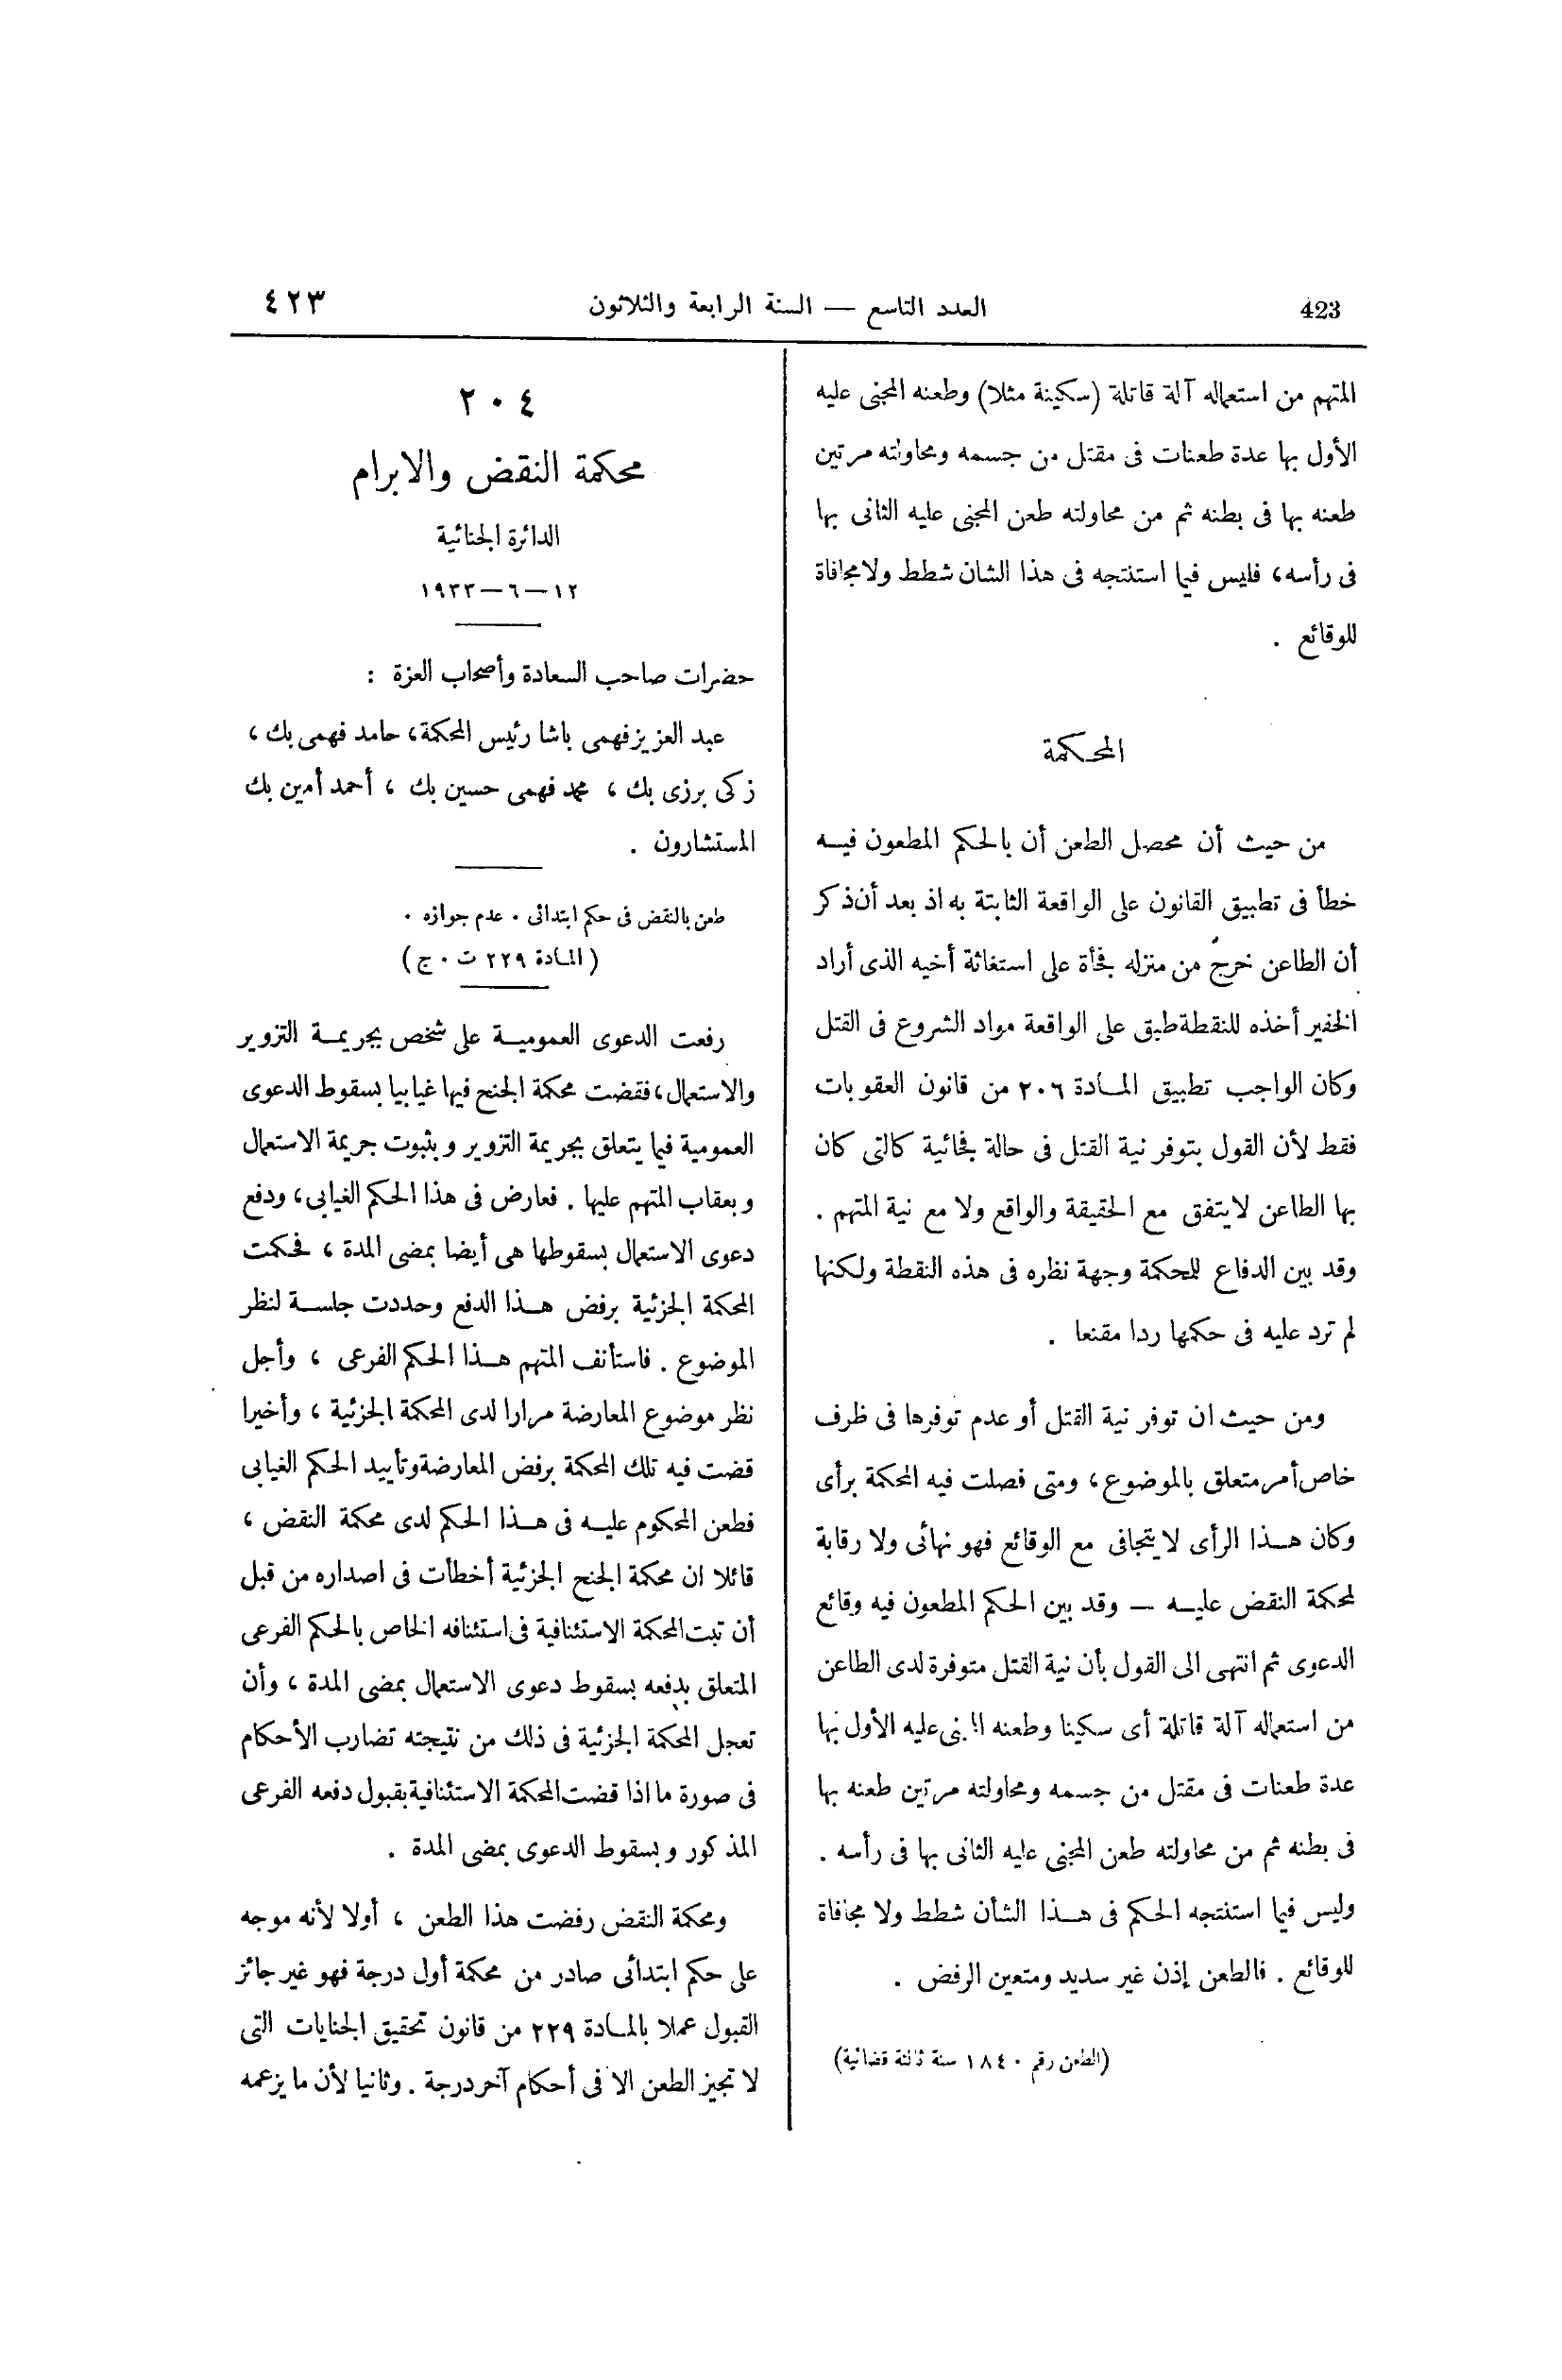 423
العدد التاسع — السنة الرابعة والثلاثون
٤٢٣
المتهم من استعماله آلة قاتلة (سكينة مثلا) وطعنه المجنى عليه
الأول بها عدة طعنات فى مقتل من جسمه ومحاولته مرتين
طعنه بها فى بطنه ثم من محاولته طعن المجنى عليه الثانى بها
فى رأسه، فليس فيما استنتجه فى هذا الشان شطط ولا مجافاة
للوقائع .
المحكمة
من حيث أن محصل الطعن أن بالحكم المطعون فيه
خطأ فى تطبيق القانون على الواقعة الثابتة به اذ بعد أن ذكر
أن الطاعن خرج من منزله فجأة على استغاثة أخيه الذى أراد
الخفير أخذه للنقطة طبق على الواقعة مواد الشروع فى القتل
وكان الواجب تطبيق المادة ٢٠٦ من قانون العقوبات
فقط لأن القول بتوفر نية القتل فى حالة فجائية كالتى كان
بها الطاعن لا يتفق مع الحقيقة والواقع ولا مع نية المتهم .
وقد بين الدفاع للمحكمة وجهة نظره فى هذه النقطة ولكنها
لم ترد عليه فى حكمها ردا مقنعا .
ومن حيث ان توفر نية القتل أو عدم توفرها فى ظرف
خاص أمر متعلق بالموضوع، ومتى فصلت فيه المحكمة برأى
وكان هذا الرأى لا يتجافى مع الوقائع فهو نهائى ولا رقابة
لمحكمة النقض عليه — وقد بين الحكم المطعون فيه وقائع
الدعوى ثم انتهى الى القول بأن نية القتل متوفرة لدى الطاعن
من استعماله آلة قاتلة أى سكينا وطعنه المجنى عليه الأول بها
عدة طعنات فى مقتل من جسمه ومحاولته مرتين طعنه بها
فى بطنه ثم من محاولته طعن المجنى عليه الثانى بها فى رأسه .
وليس فيما استنتجه الحكم فى هذا الشأن شطط ولا مجافاة
للوقائع . فالطعن إذن غير سديد ومتعين الرفض .
(الطعن رقم ١٨٤٠ سنة ثالثة قضائية)
٢٠٤
محكمة النقض والابرام
الدائرة الجنائية
١٢—٦—١٩٣٣
حضرات صاحب السعادة وأصحاب العزة :
عبد العزيز فهمى باشا رئيس المحكمة، حامد فهمى بك ،
زكى برزى بك ، محمد فهمى حسين بك ، أحمد أمين بك
المستشارون .
طعن بالنقض فى حكم ابتدائى . عدم جوازه .
(المادة ٢٢٩ ت . ج)
رفعت الدعوى العمومية على شخص بجريمة التزوير
والاستعمال، فقضت محكمة الجنح فيها غيابيا بسقوط الدعوى
العمومية فيما يتعلق بجريمة التزوير وبثبوت جريمة الاستعمال
وبعقاب المتهم عليها . فعارض فى هذا الحكم الغيابى، ودفع
دعوى الاستعمال بسقوطها هى أيضا بمضى المدة ، فحكمت
المحكمة الجزئية برفض هذا الدفع وحددت جلسة لنظر
الموضوع . فاستأنف المتهم هذا الحكم الفرعى ، وأجل
نظر موضوع المعارضة مرارا لدى المحكمة الجزئية ، وأخيرا
قضت فيه تلك المحكمة برفض المعارضة وتأييد الحكم الغيابى
فطعن المحكوم عليه فى هذا الحكم لدى محكمة النقض ،
قائلا ان محكمة الجنح الجزئية أخطأت فى اصداره من قبل
أن تبت المحكمة الاستئنافية فى استئنافه الخاص بالحكم الفرعى
المتعلق بدفعه بسقوط دعوى الاستعمال بمضى المدة ، وأن
تعجل المحكمة الجزئية فى ذلك من نتيجته تضارب الأحكام
فى صورة ما اذا قضت المحكمة الاستئنافية بقبول دفعه الفرعى
المذكور وبسقوط الدعوى بمضى المدة .
ومحكمة النقض رفضت هذا الطعن ، أولا لأنه موجه
على حكم ابتدائى صادر من محكمة أول درجة فهو غير جائز
القبول عملا بالمادة ٢٢٩ من قانون تحقيق الجنايات التى
لا تجيز الطعن الا فى أحكام آخر درجة . وثانيا لأن ما يزعمه